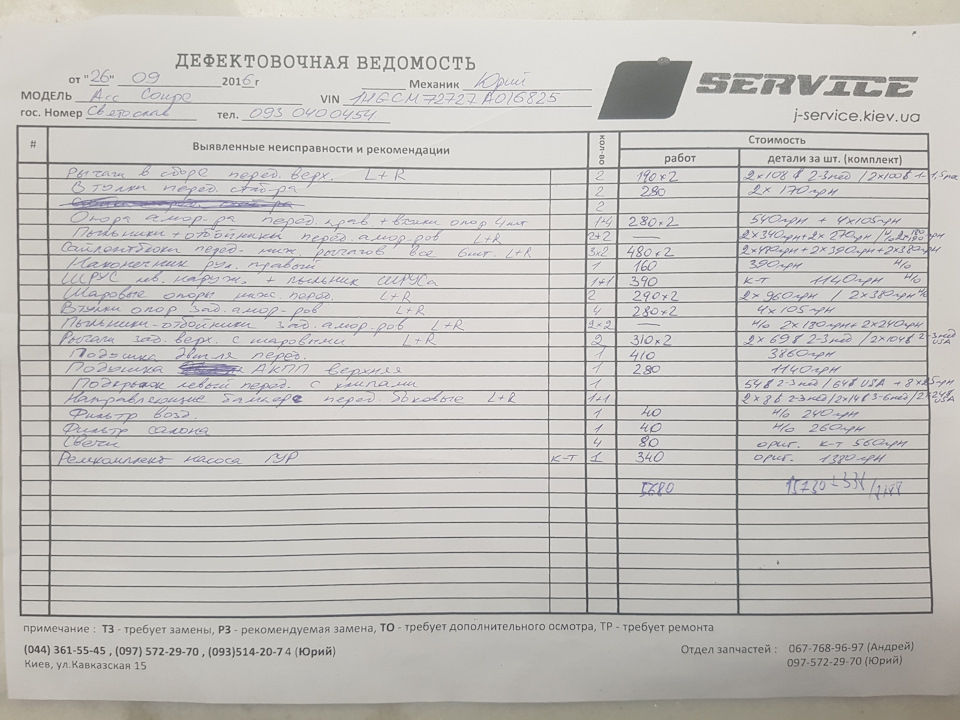 ДЕФЕКТОВОЧНАЯ ВЕДОМОСТЬ
от "26" 09 2016 г Механик Юрий
МОДЕЛЬ Acc Coupe VIN 1HGCM72727A016825
гос. Номер Светослав тел. 093 0400454
SERVICE
j-service.kiev.ua
# Выявленные неисправности и рекомендации кол-во Стоимость
работ детали за шт. (комплект)
Рычаги в сборе перед. верх. L+R 2 190×2 2×108$ 2-3нед / 2×100$
Втулки перед. стаб-ра 2 280 2× 170грн
2
Опора амор-ра перед. прав + втулки опор 4шт 1+4 280×2 540грн + 4×105грн
Пыльники + отбойники перед. амор-ров L+R 2+2 2×340грн+2×270грн
Сайлентблоки перед. ниж. рычагов все 6шт. L+R 3×2 480×2 2×480грн+2×390грн+2×380грн
Наконечник рул. правый 1 160 390грн н/о
ШРУС лев. наруж. + пыльник ШРУСа 1+1 390 к-т 1140грн н/о
Шаровые опоры ниж. перед. L+R 2 290×2 2×960грн / 2×380грн н/о
Втулки опор зад. амор-ров L+R 4 280×2 4×105грн
Пыльники-отбойники зад. амор.ров L+R 2×2 — н/о 2×180грн+2×240грн
Рычаги зад. верх. с шаровыми L+R 2 310×2 2×69$ 2-3нед / 2×104$ 2-3нед USA
Подушка двиг-ля перед. 1 410 3860грн
Подушка АКПП верхняя 1 280 1140грн
Подкрылок левый перед. с клипами 1 54$ 2-3нед / 64$ USA + 8×25грн
Направляющие бампера перед. боковые L+R 1+1 2×8$ 2-3нед/2×14$ 3-6нед/2×24$ USA
Фильтр возд. 1 40 н/о 240грн
Фильтр салона 1 40 н/о 260грн
Свечи 4 80 ориг. к-т 560грн
Ремкомплект насоса ГУР к-т 1 340 ориг. 1380грн
5680 15730
примечание : ТЗ - требует замены, РЗ - рекомендуемая замена, ТО - требует дополнительного осмотра, ТР - требует ремонта
(044) 361-55-45 , (097) 572-29-70 , (093)514-20-7 4 (Юрий) Отдел запчастей : 067-768-96-97 (Андрей)
Киев, ул.Кавказская 15 097-572-29-70 (Юрий)